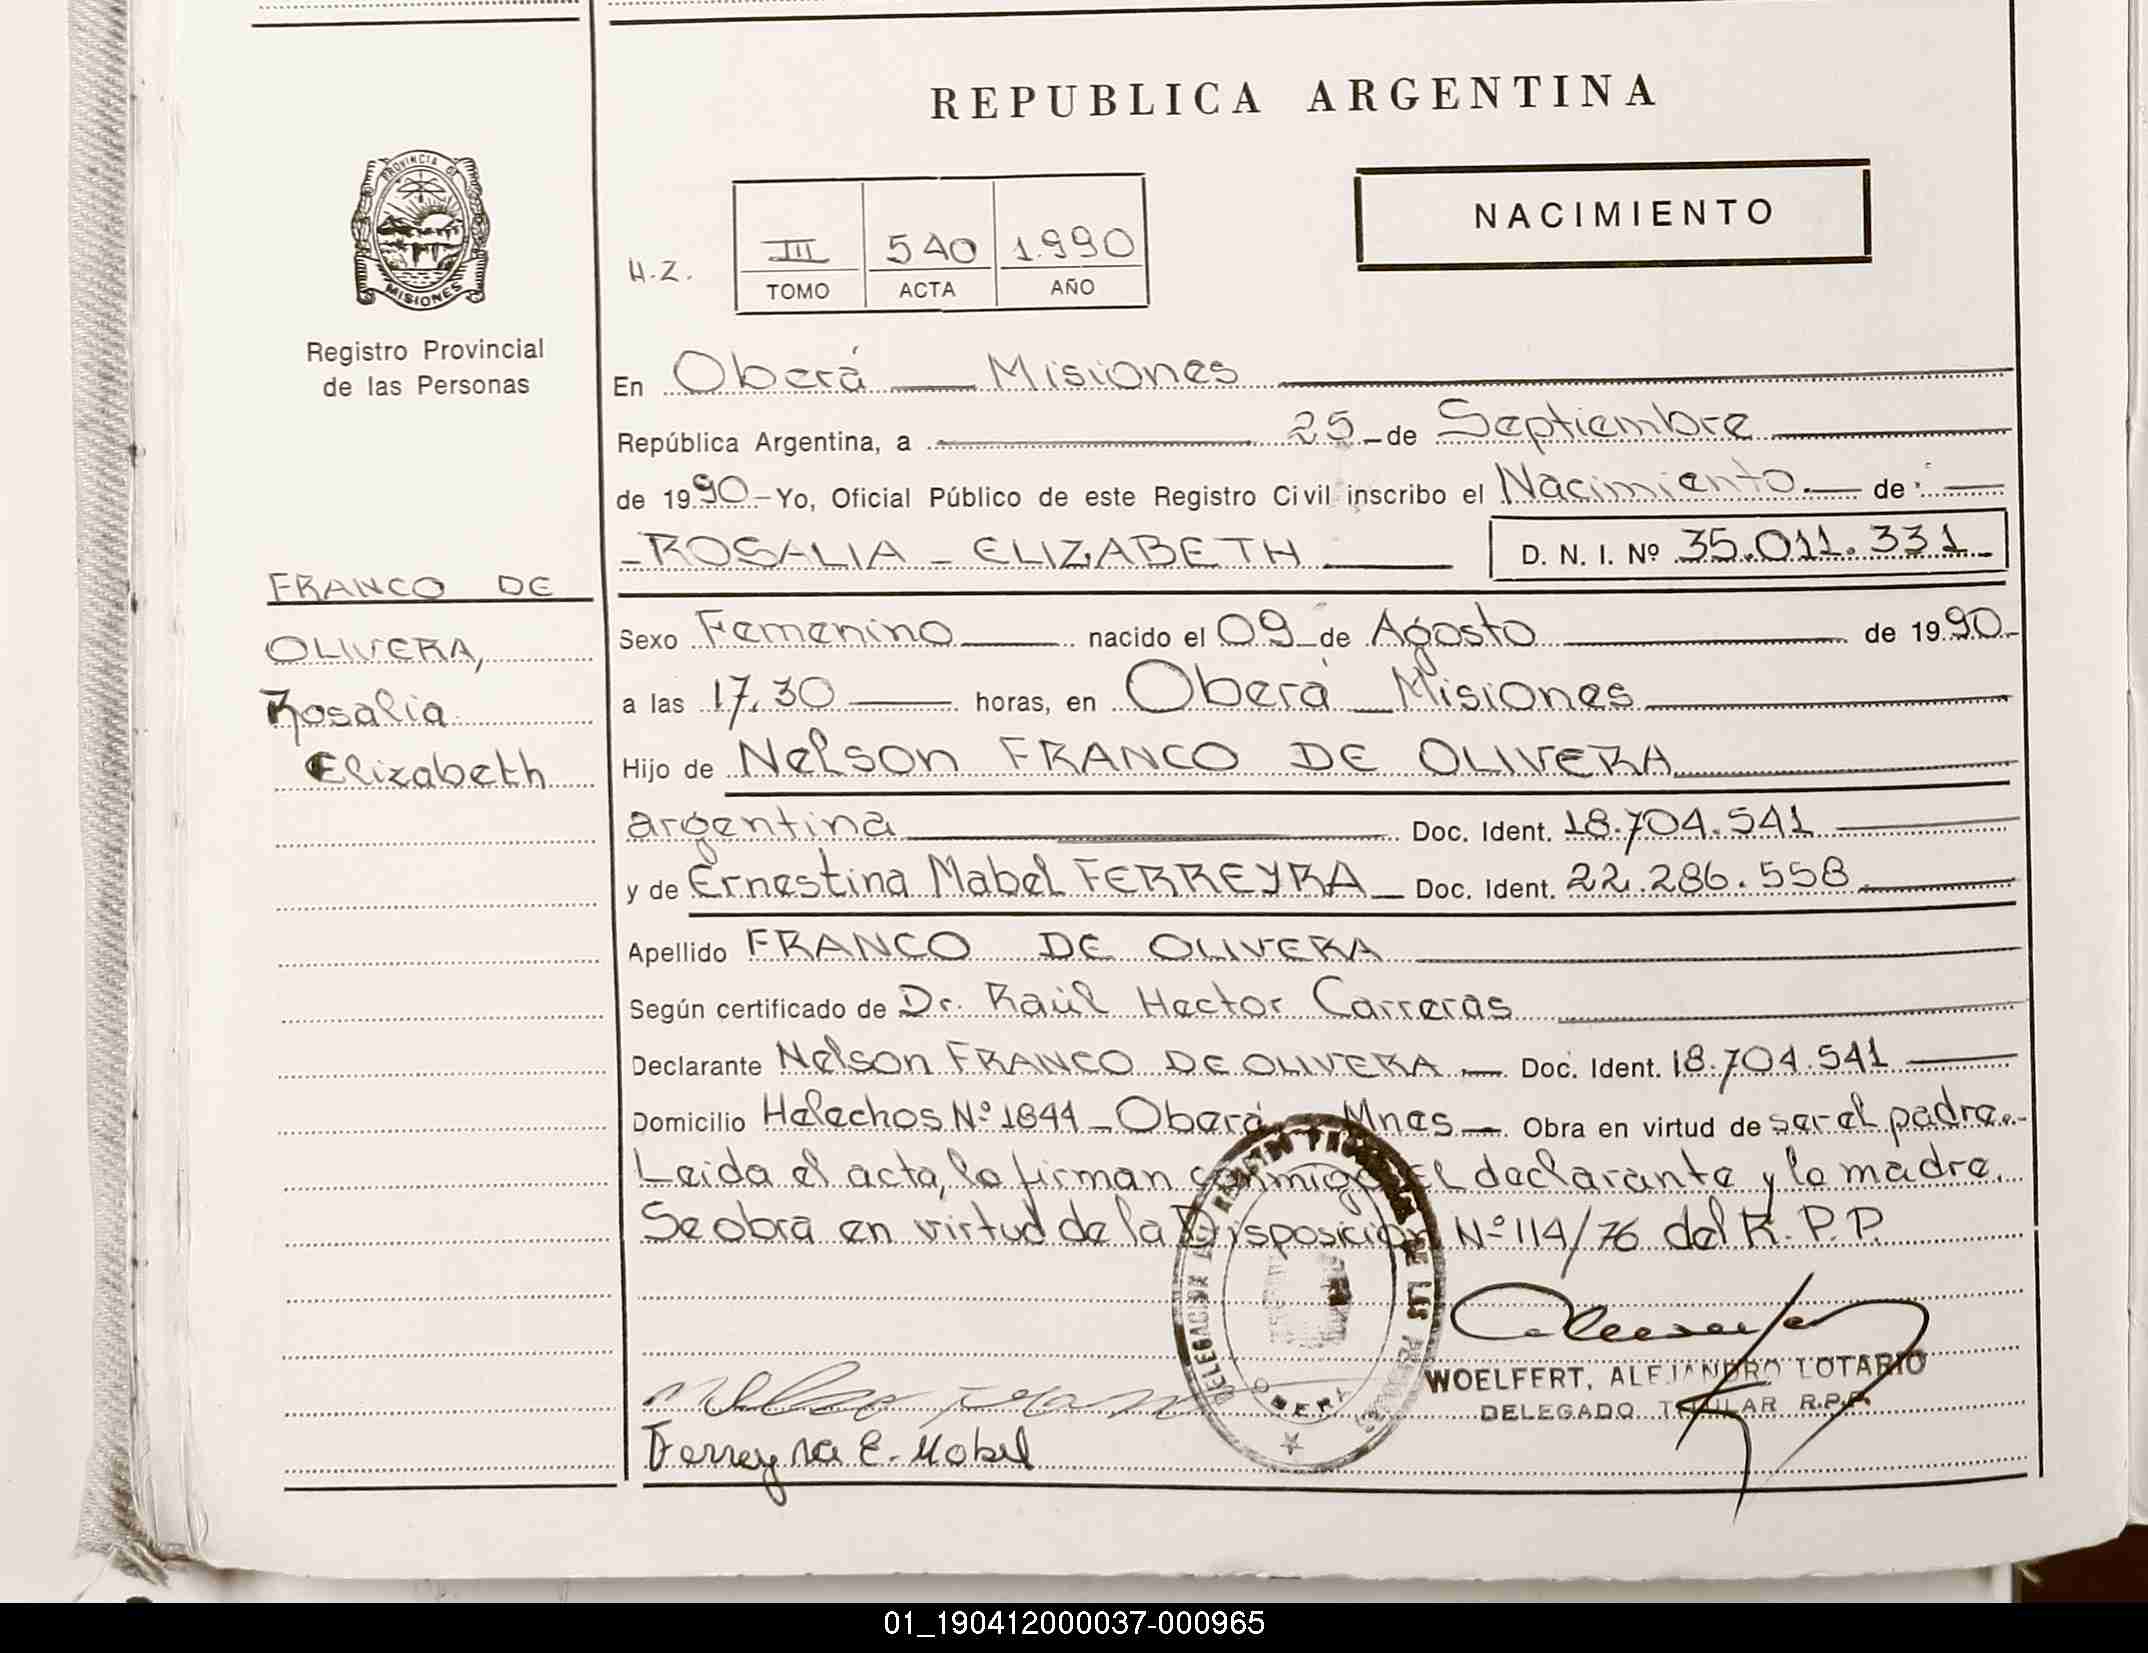 REPUBLICA ARGENTINA
PROVINCIA DE
MISIONES
Registro Provincial
de las Personas
NACIMIENTO
H.Z.
III 540 1.990
TOMO ACTA AÑO
En Oberá — Misiones
República Argentina, a 25 de Septiembre
de 1990 - Yo, Oficial Público de este Registro Civil inscribo el Nacimiento. — de :
- ROSALIA - ELIZABETH — D. N. I. Nº 35.011.331 -
FRANCO DE
OLIVERA,
Rosalia
Elizabeth
Sexo Femenino — nacido el 09 de Agosto de 1990 -
a las 17.30 — horas, en Oberá - Misiones
Hijo de Nelson FRANCO DE OLIVERA
argentina Doc. Ident. 18.704.541
y de Ernestina Mabel FERREYRA - Doc. Ident. 22.286.558
Apellido FRANCO DE OLIVERA
Según certificado de Dr. Raúl Hector Carreras
Declarante Nelson FRANCO DE OLIVERA - Doc. Ident. 18.704.541
Domicilio Helechos Nº 1844 - Oberá - Mnes - Obra en virtud de ser el padre.-
Leida el acta, la firman conmigo el declarante y la madre.
Se obra en virtud de la Disposición Nº 114/76 del R. P. P.
DELEGACION DEL REGISTRO PROVINCIAL DE LAS PERSONAS
OBERA
WOELFERT, ALEJANDRO LOTARIO
DELEGADO TITULAR R.P.P.
Ferreyra E. Mabel
01_190412000037-000965